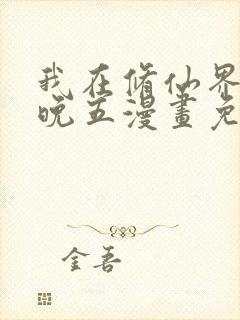 我在脩仙界
晚五漫畫免
金吾